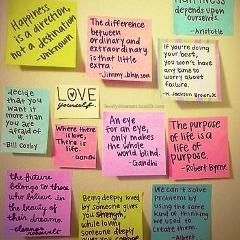 Happiness
is a direction,
not a destination
-Unknown
The difference
between
ordinary and
extraordinary
is that little
extra.
-Jimmy Johnson
Happiness
depends upon
ourselves.
-Aristotle
If you're doing
your best,
you won't
have any
time to
worry about
failure.
H. Jackson Brown Jr.
decide
that you
want it
more than
you are
afraid of
it.
-Bill Cosby
LOVE
yourself.
Where there
is love,
There is
life.
-Gandhi
An eye
for an
eye, only
makes the
whole world
blind.
-Gandhi
The purpose
of life is a
life of
purpose.
-Robert Byrne
the future
belongs to those
who believe in
the beauty of
their dreams.
-eleanor roosevelt
Being deeply loved
by someone gives
you strength,
while loving
someone deeply
gives you courage
We can't solve
problems by
using the same
kind of thinking
we used to
create them.
-Albert